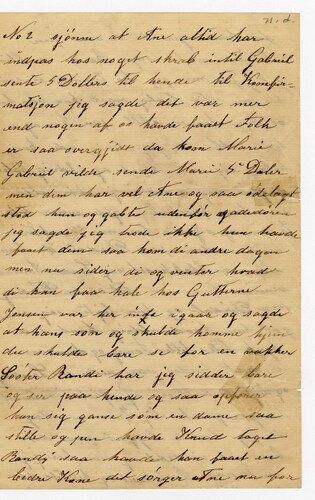 n. d.
No 2 sjønm at Ane altid har
indpas hos noget skrab intil Gabriel
sente 5 Dollers til hende til Komfir-
matsjon jeg sagde det var mer
end nogen af os havde faaet Folk
er saa overgjidt da kom Marie
Gabriel vilde sende Marie 5 Daler
men dem har vel Ane og saa ødelagt
stod hun og gabte udenfor gadedøren
jeg sagde jeg trode ikke hun havde
faaet dem saa kom di andre dagen
men nu sider di og venter hvad
di kan faa hale hos Gutterne
Jensen var her inde igaar og sagde
at hans søn og skulde komme hjem
du skulde bare se for en vakker
Søster Randi har jeg sidder bare
og ser paa hende og saa opfører
hun sig ganse som en dame saa
stille og pen havde Knud taget
Randi saa havde han faaet en
bedre Kone det sørger Ane nu for